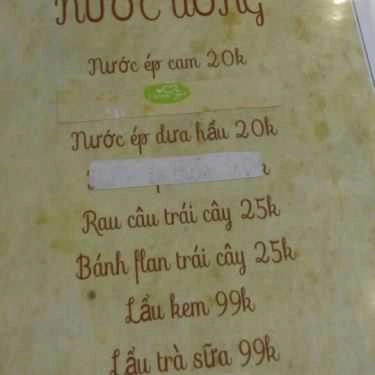 NƯỚC UỐNG
Nước ép cam 20k
Nước ép dưa hấu 20k
Rau câu trái cây 25k
Bánh flan trái cây 25k
Lẩu kem 99k
Lẩu trà sữa 99k